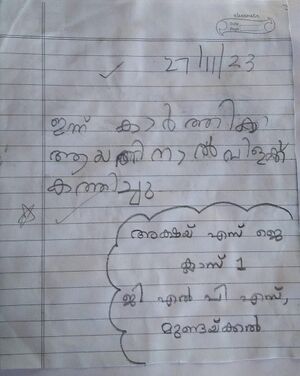 classmate
Date
Page
27/11/23
ഇന്ന് കാർത്തിക
ആയതിനാൽ വിളക്ക്
കത്തിച്ചു.
അക്ഷയ് എസ് ജെ
ക്ലാസ് 1
ജി എൽ പി എസ്,
മുണ്ടയ്ക്കൽ